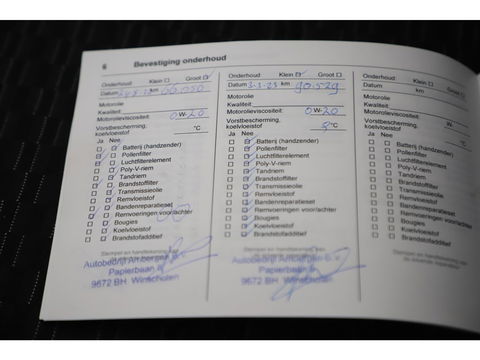 6 Bevestiging onderhoud
Onderhoud Klein Groot
Datum km 66.050
Motorolie
Kwaliteit
Motorolieviscositeit: 0W-20
Vorstbescherming, koelvloeistof °C
Ja Nee
Batterij (handzender)
Pollenfilter
Luchtfilterelement
Poly-V-riem
Tandriem
Brandstoffilter
Transmissieolie
Remvloeistof
Bandenreparatieset
Remvoeringen voor/achter
Bougies
Koelvloeistof
Brandstofadditief
Autobedrijf Ambergen B.V.
Papierbaan
9672 BH Winschoten
Onderhoud Klein Groot
Datum 3-3-23 km 90.529
Motorolie
Kwaliteit:
Motorolieviscositeit: 0W-20
Vorstbescherming,
koelvloeistof °C
Ja Nee
Batterij (handzender)
Pollenfilter
Luchtfilterelement
Poly-V-riem
Tandriem
Brandstoffilter
Transmissieolie
Remvloeistof
Bandenreparatieset
Remvoeringen voor/achter
Bougies
Koelvloeistof
Brandstofadditief
Autobedrijf Ambergen B.V.
Papierbaan
9672 BH Winschoten
Onderhoud
Datum
km
Motorolie
Kwaliteit:
Motorolieviscositeit:
Vorstbescherming,
koelvloeistof
Ja Nee
Batterij (handzender)
Pollenfilter
Luchtfilterelement
Poly-V-riem
Tandriem
Brandstoffilter
Transmissieolie
Remvloeistof
Bandenreparatieset
Remvoeringen voor
Bougies
Koelvloeistof
Brandstofadditief